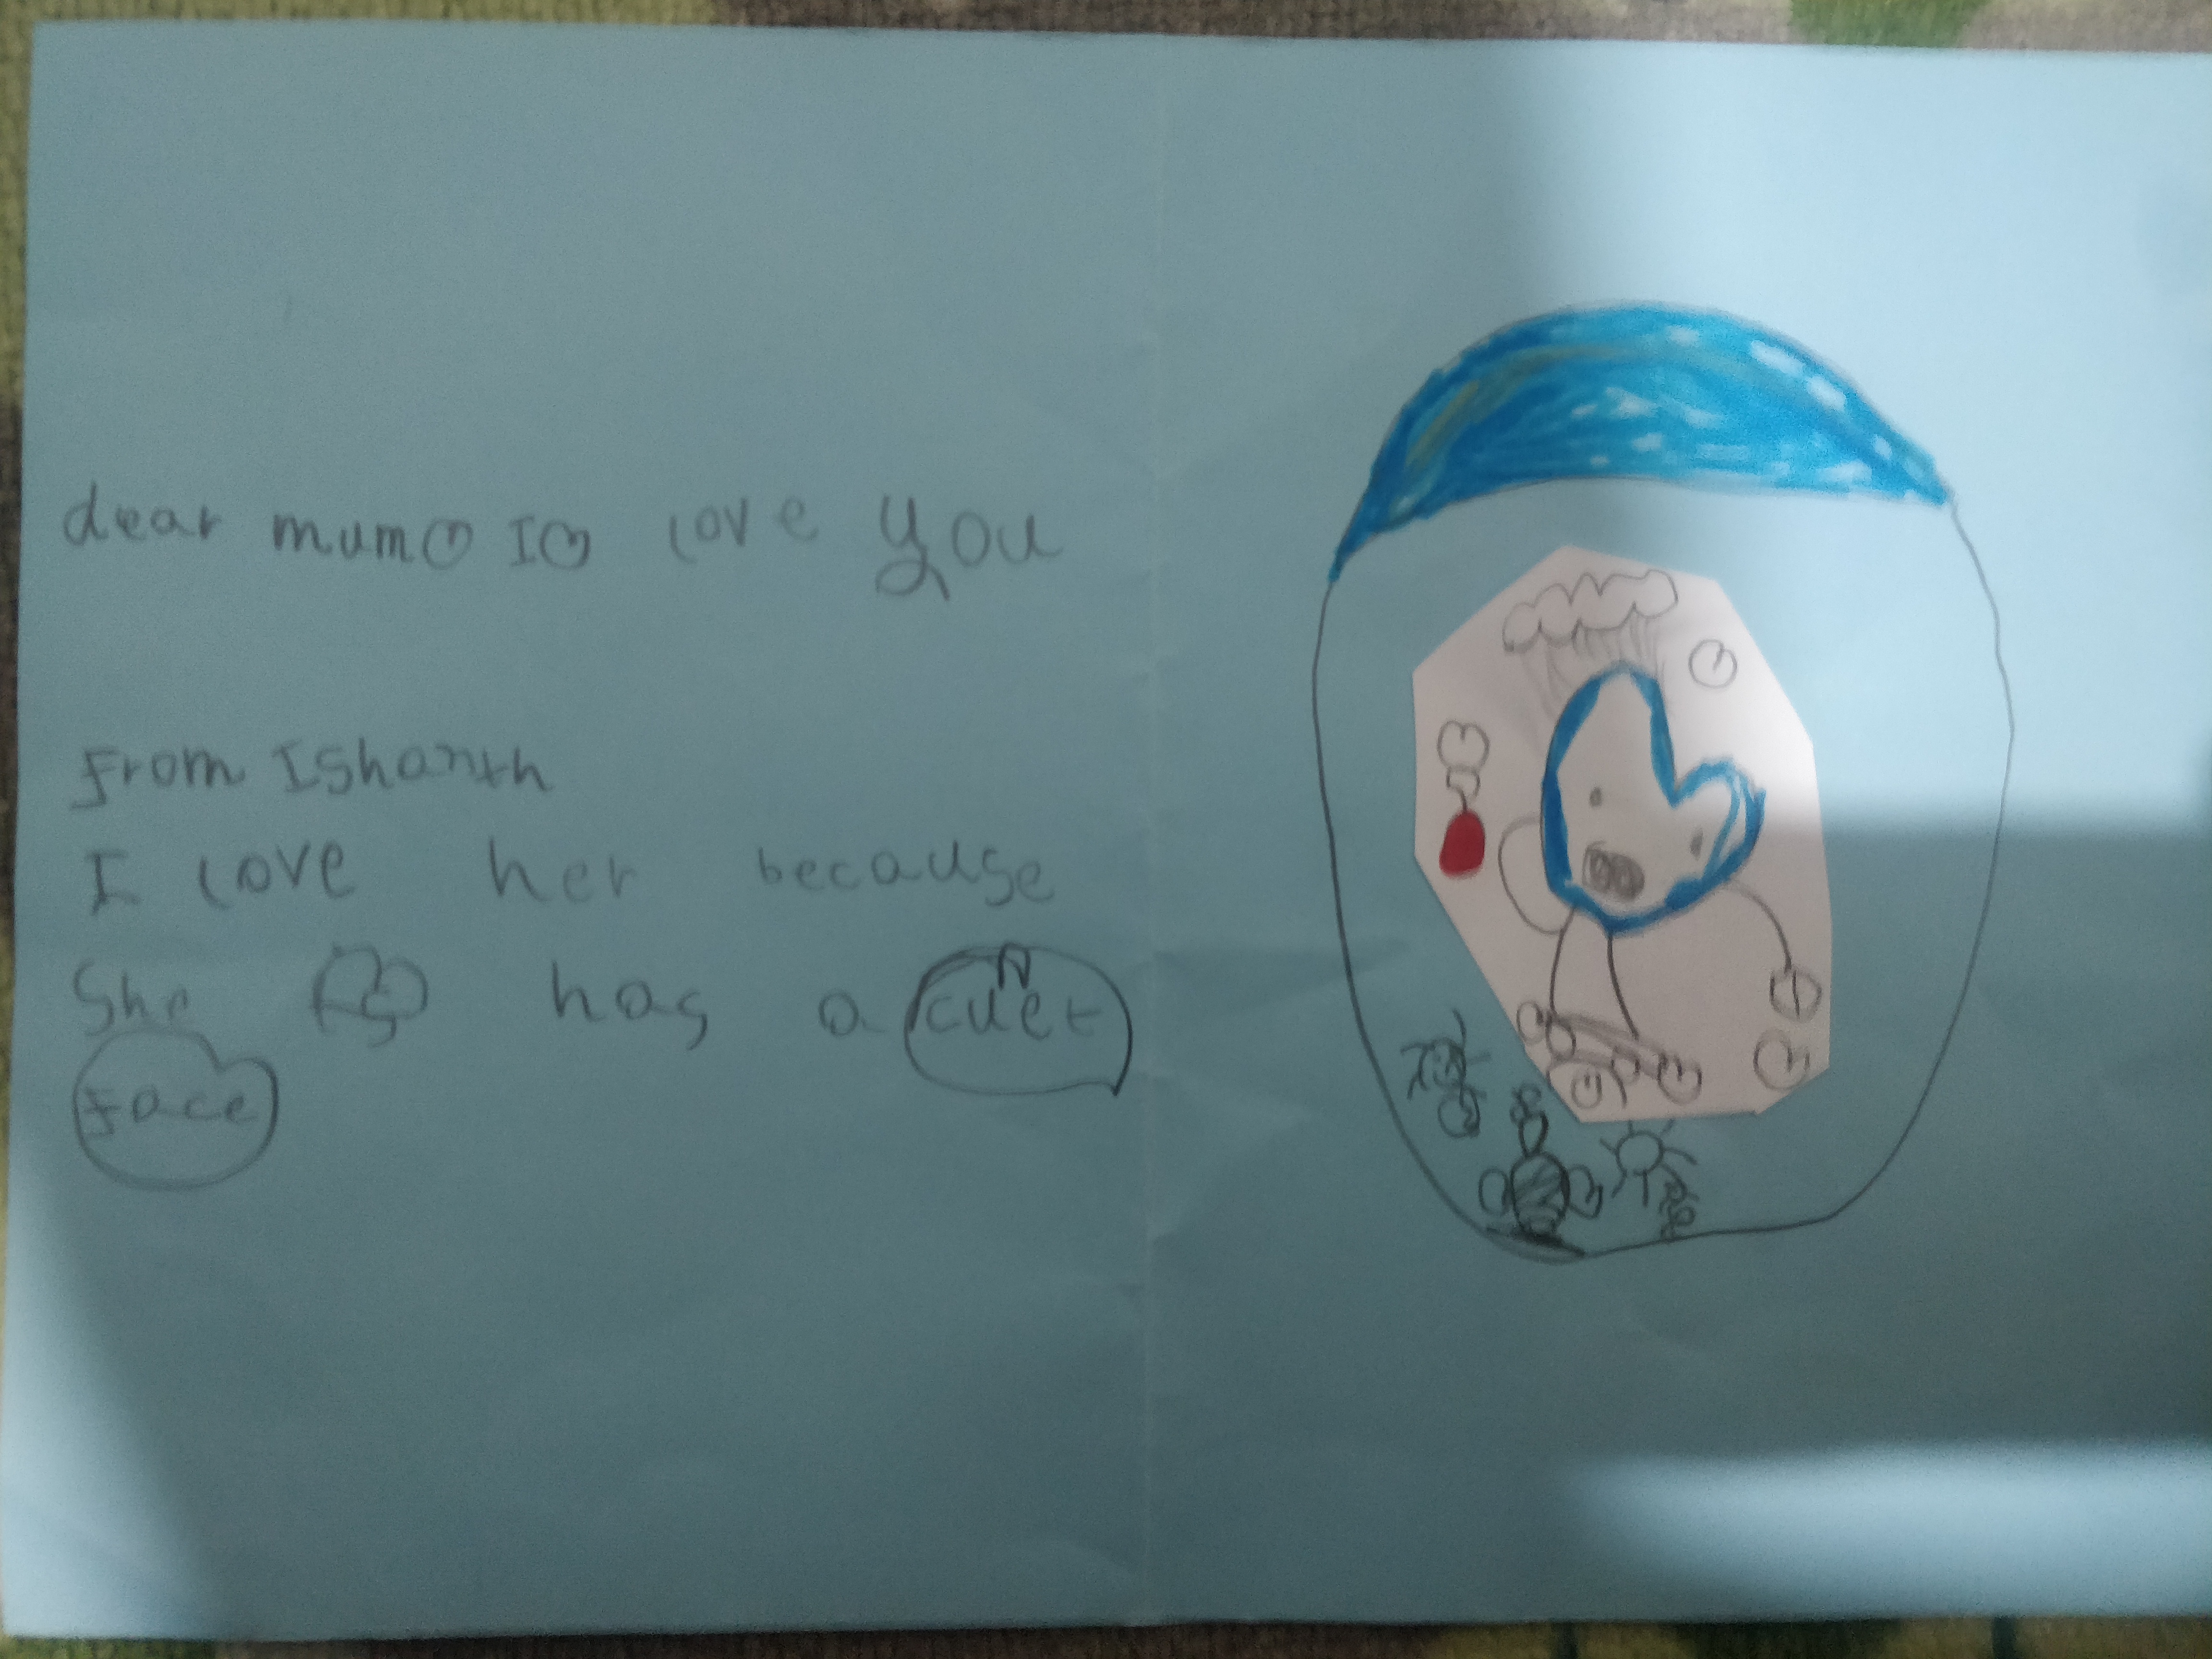 dear mum I love you
From Ishanth
I love her because
She has a cuet
Face